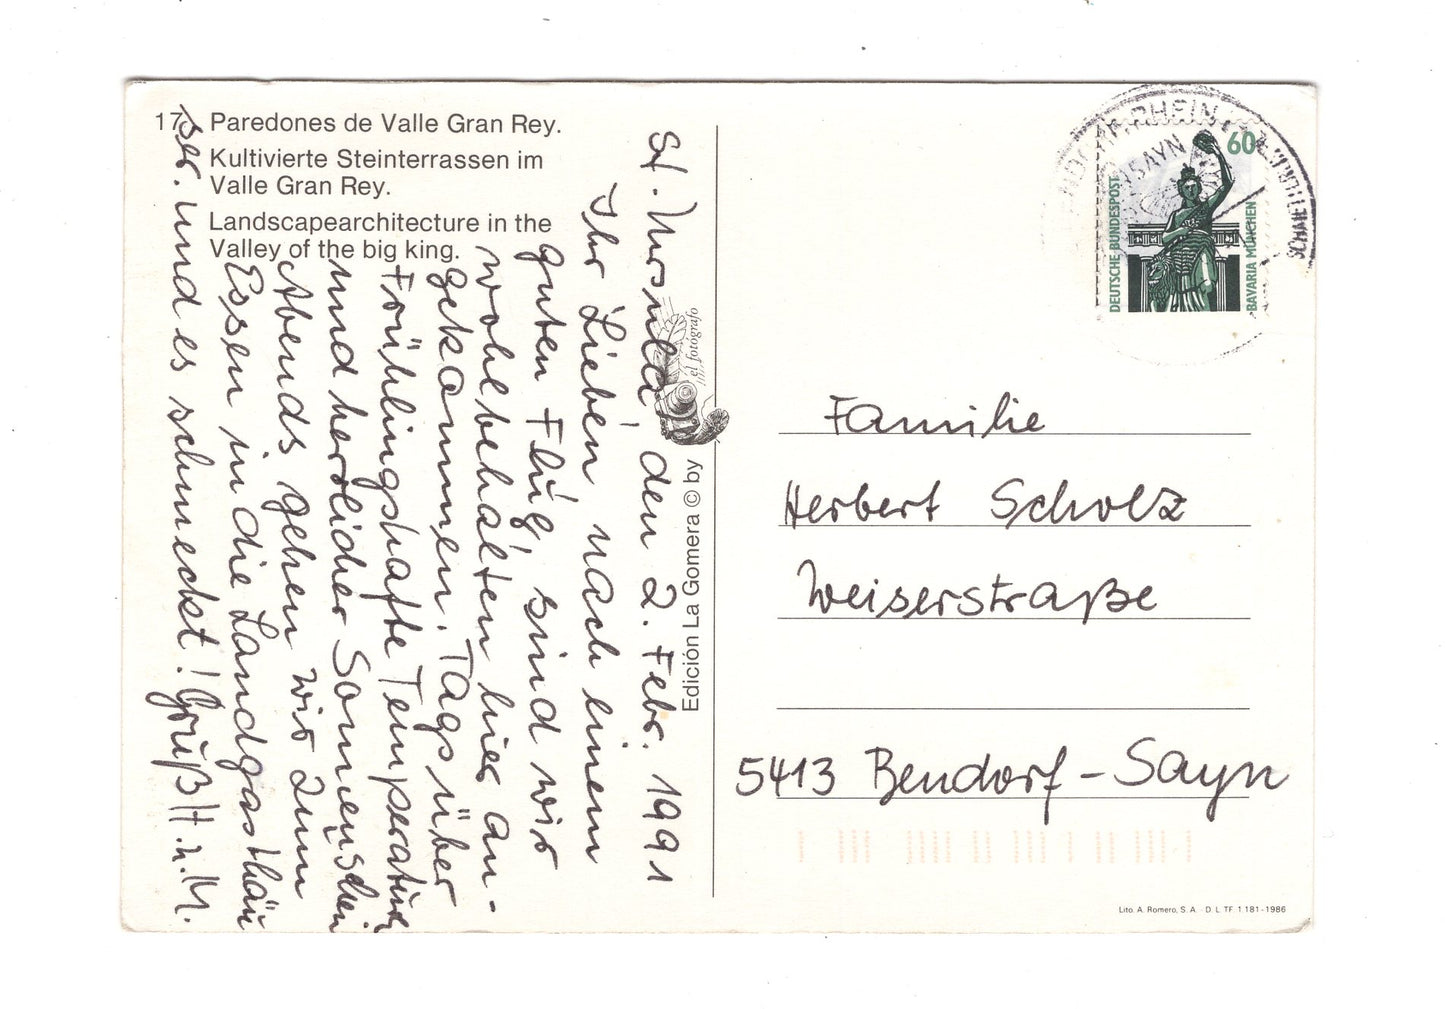 17. Paredones de Valle Gran Rey.
Kultivierte Steinterrassen im
Valle Gran Rey.
Landscapearchitecture in the
Valley of the big king.
St. Ursula, den 2. Febr. 1991
Ihr Lieben, nach einem
guten Flug, sind wir
wohlbehalten hier an-
gekommen. Tags über
Frühlingshafte Temperaturen
und herrlicher Sonnenschein
Abends gehen wir zum
Essen in die Landgasthäu
ser. und es schmeckt! Gruß H. u. M.
el fotógrafo
Edición La Gomera © by
60
DEUTSCHE BUNDESPOST
BAVARIA MÜNCHEN
RHEIN
SAYN
Familie
Herbert Scholz
Weiserstraße
5413 Bendorf-Sayn
Lito. A. Romero, S. A. D. L. TF. 1.181-1986